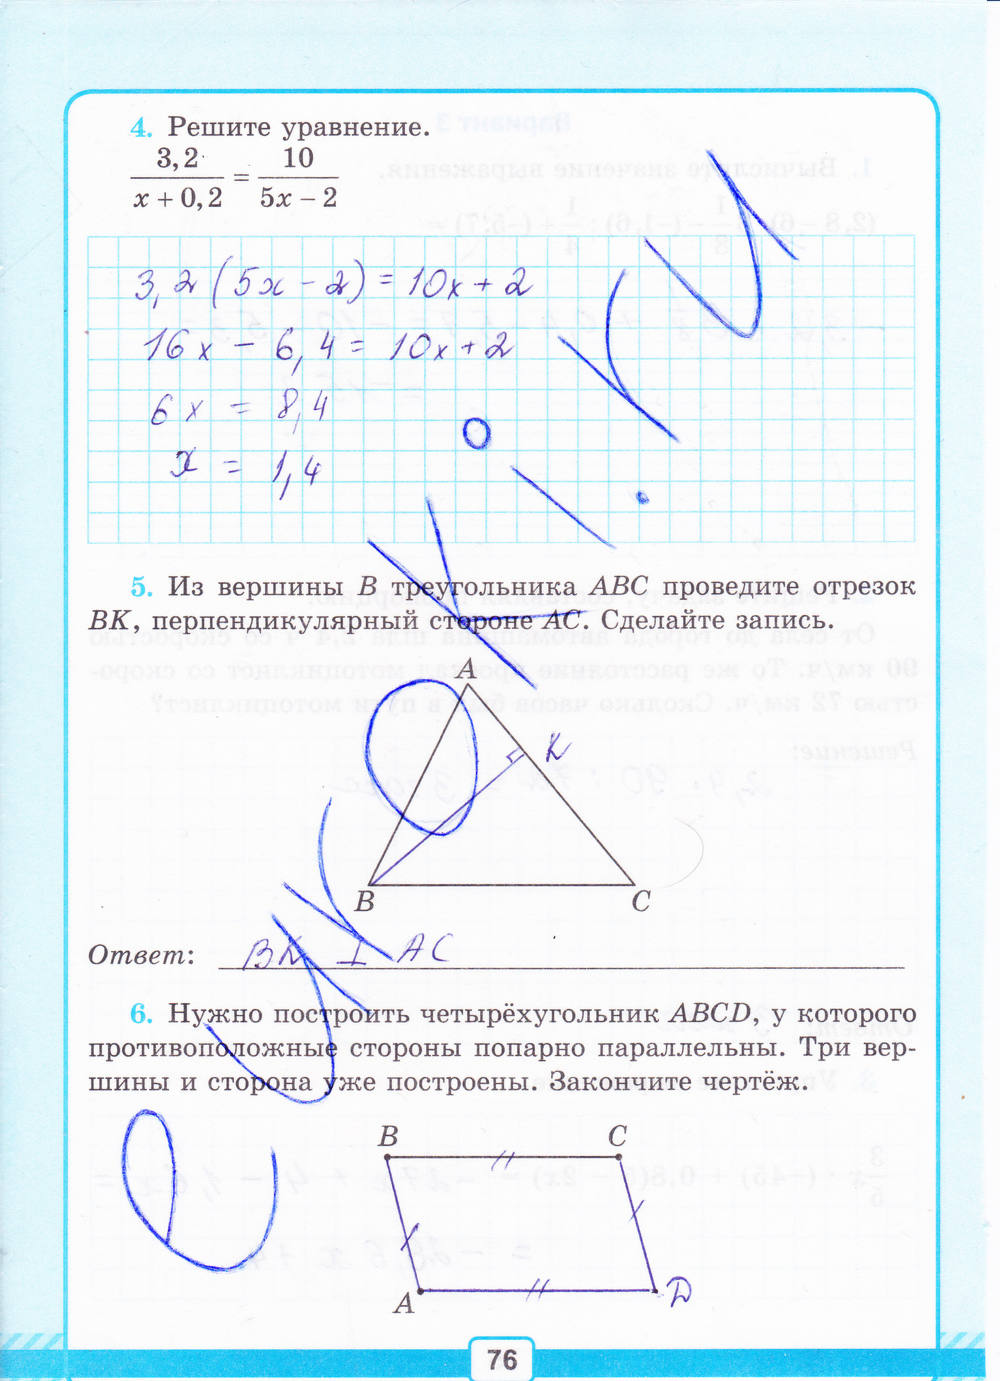 4. Решите уравнение.
3,2 / x + 0,2 = 10 / 5x − 2
3,2 (5x − 2) = 10x + 2
16x − 6,4 = 10x + 2
6x = 8,4
x = 1,4
5. Из вершины B треугольника ABC проведите отрезок
BK, перпендикулярный стороне AC. Сделайте запись.
A
K
B
C
Ответ: BK ⊥ AC
6. Нужно построить четырёхугольник ABCD, у которого
противоположные стороны попарно параллельны. Три вер-
шины и сторона уже построены. Закончите чертёж.
B C
A D
76